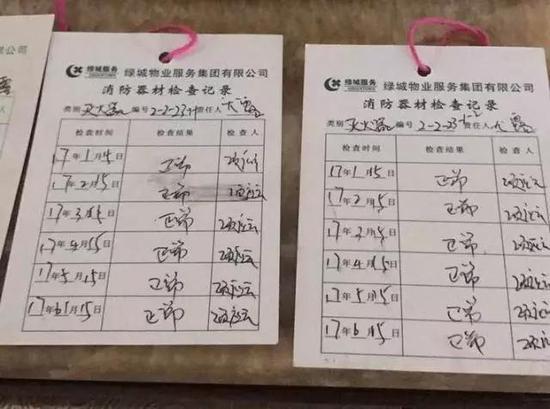 绿城服务 绿城物业服务集团有限公司
消防器材检查记录
类别 灭火器 编号 2-2-23 责任人
检查时间 检查结果 检查人
17年1月15日 正常
17年2月15日 正常
17年3月15日 正常
17年4月15日 正常
17年5月15日 正常
17年6月15日 正常
绿城服务 绿城物业服务集团有限公司
消防器材检查记录
类别 灭火器 编号 2-2-23 责任人
检查时间 检查结果 检查人
17年1月15日 正常
17年2月15日 正常
17年3月15日 正常
17年4月15日 正常
17年5月15日 正常
17年6月15日 正常